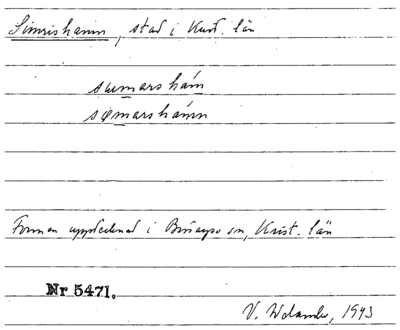 Simrishamn, stad i Krist. län
sɯmarshám
sømarshámn
Formen upptecknad i Brösarps sn, Krist. län
Nr 5471.
V. 1943